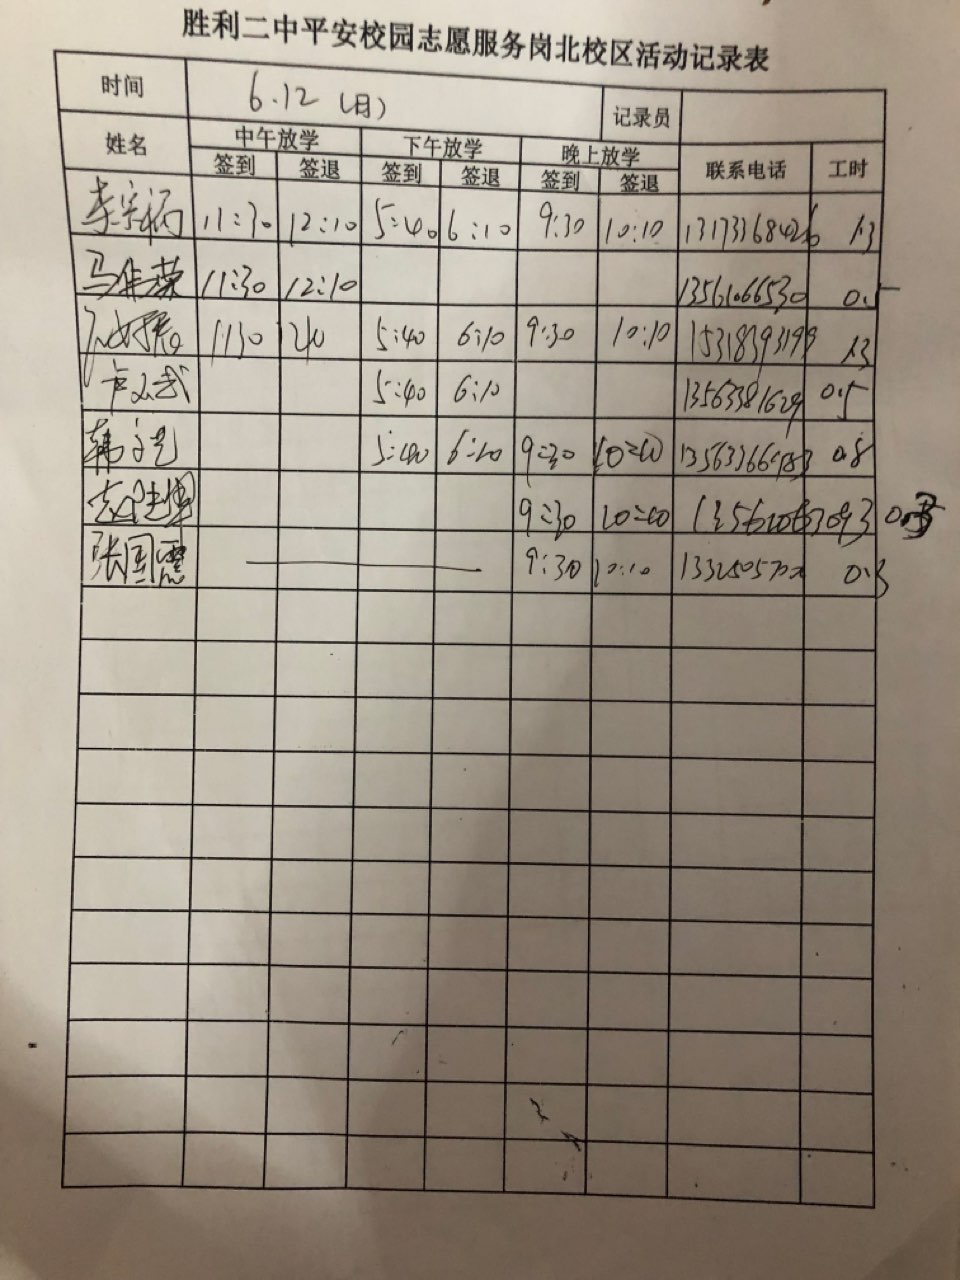 胜利二中平安校园志愿服务岗北校区活动记录表
时间 6.12 (月) 记录员
姓名 中午放学 下午放学 晚上放学 联系电话 工时
签到 签退 签到 签退 签到 签退
11:30 12:10 5:40 6:10 9:30 10:10 13173368426 1.3
11:30 12:10 13561066530 0.5
5:40 6:10 9:30 10:10 15318393199 1.3
5:40 6:10 0.5
韩 5:40 6:10 9:30 10:10 0.8
9:30 10:10
张国震 9:30 10:10 0.3